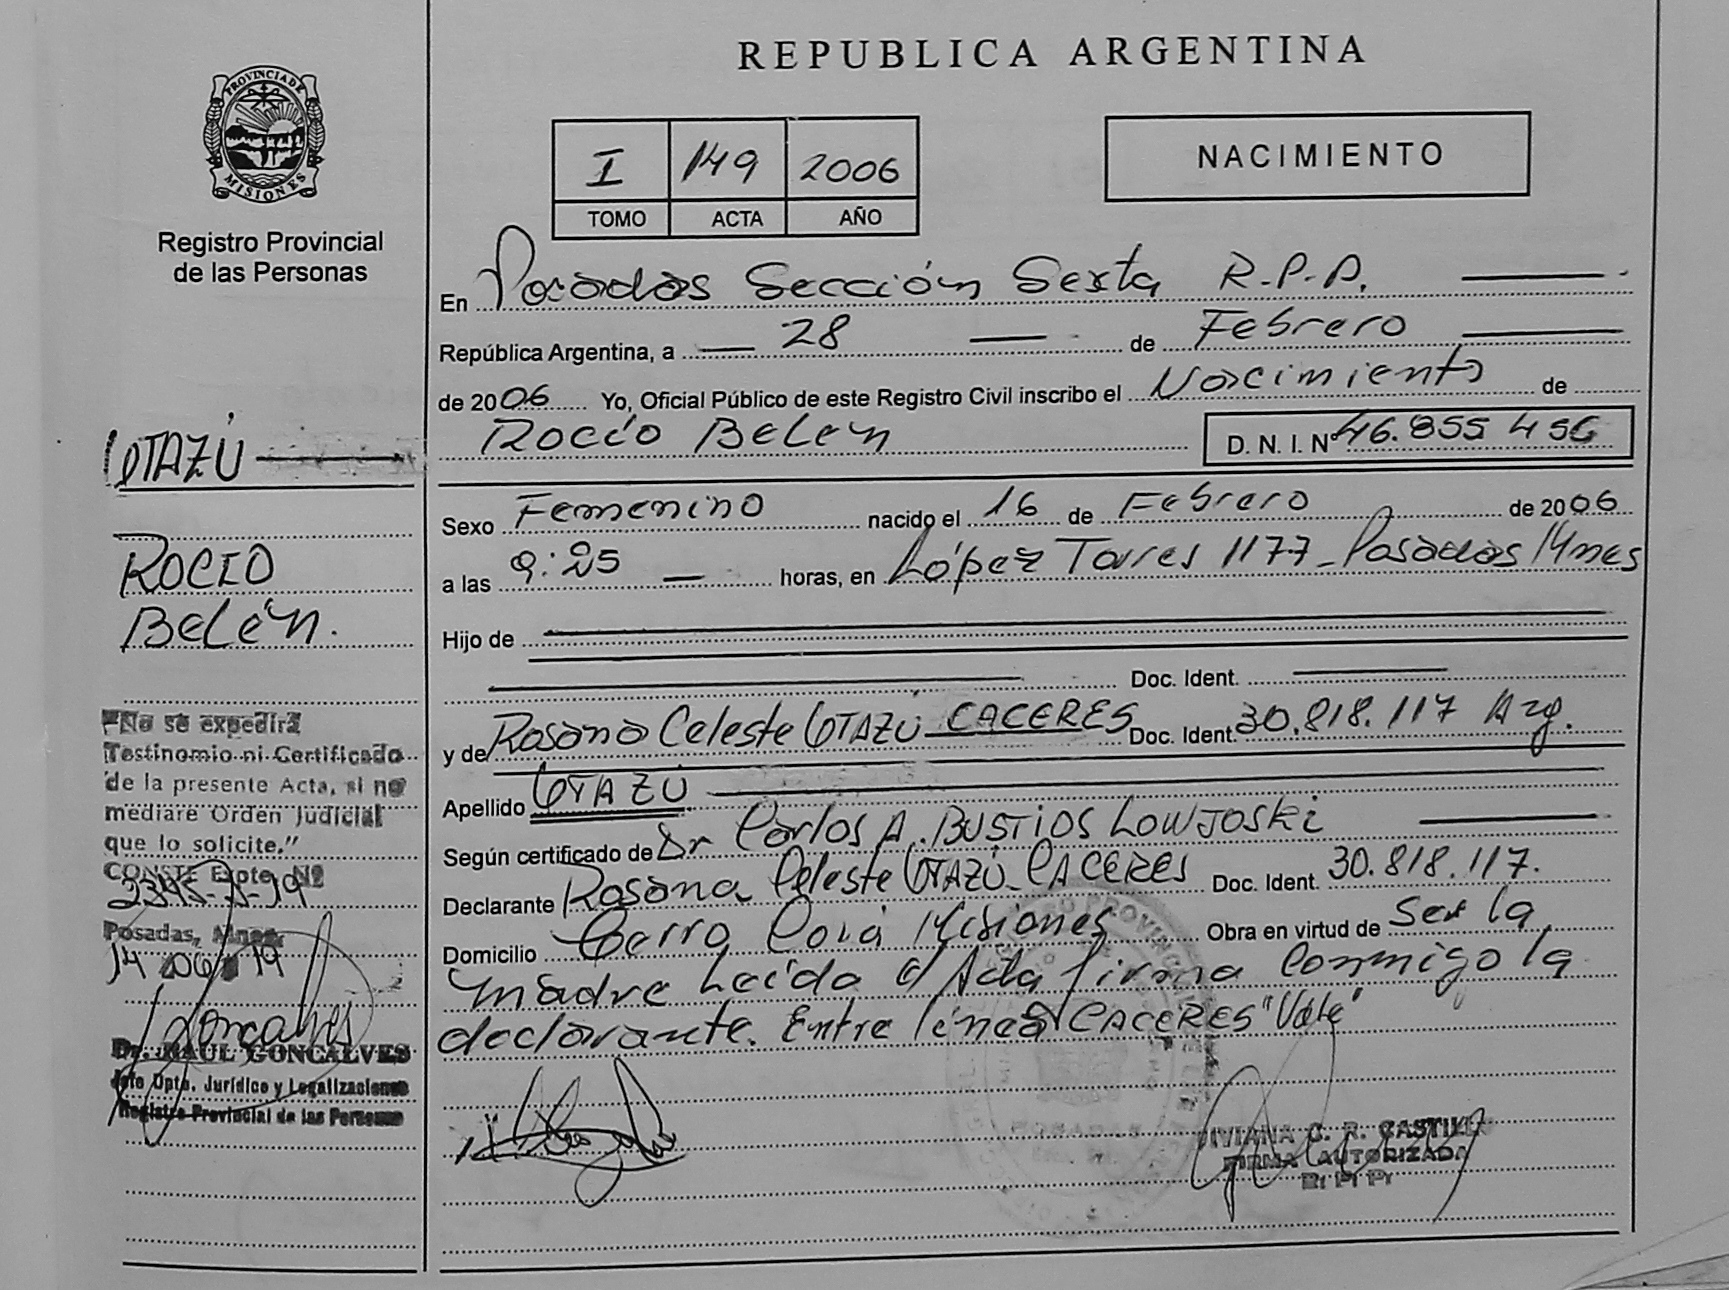 PROVINCIA DE
MISIONES
Registro Provincial
de las Personas
OTAZÚ
ROCIO
BELÉN.
"No se expedirá
Testimonio ni Certificado
de la presente Acta, si no
mediare Orden Judicial
que lo solicite."
CONSTE Expte. Nº
Posadas, Mnes.
14 06 19
Goncalves
Dr. RAUL GONCALVES
Jefe Dpto. Jurídico y Legalizaciones
Registro Provincial de las Personas
REPUBLICA ARGENTINA
I 149 2006
TOMO ACTA AÑO
NACIMIENTO
En Posadas Sección Sexta R.P.P.
República Argentina, a 28 de Febrero
de 2006 Yo, Oficial Público de este Registro Civil inscribo el Nacimiento de
Rocío Belén D. N. I. Nº 46.855 456
Sexo Femenino nacido el 16 de Febrero de 2006
a las 9:25 horas, en López Torres 1177 - Posadas Mnes
Hijo de
Doc. Ident.
y de Rosana Celeste OTAZÚ CACERES Doc. Ident. 30.818.117 Arg.
Apellido OTAZÚ
Según certificado de Dr Carlos A. BUSTIOS LOWJOSKi
Declarante Rosana Celeste OTAZÚ CACERES Doc. Ident. 30.818.117.
Domicilio Cerro Corá Misiones Obra en virtud de Ser la
madre Leída el Acta firma conmigo la
declarante. Entre línea CACERES "Vale"
VIVIANA C. R. CASTILLO
FIRMA AUTORIZADA
R. P. P.